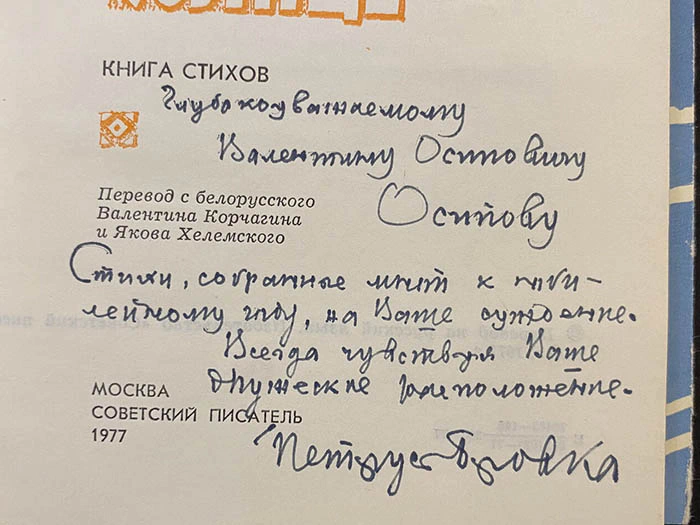 КНИГА СТИХОВ
Глубокоуважаемому
Валентину Осиповичу
Осипову
Перевод с белорусского
Валентина Корчагина
и Якова Хелемского
Стихи, собранные мной к юби-
лейному году, на Ваше суждение.
Всегда чувствуя Ваше
дружеские расположение.
МОСКВА
СОВЕТСКИЙ ПИСАТЕЛЬ
1977
Петрусь Бровка